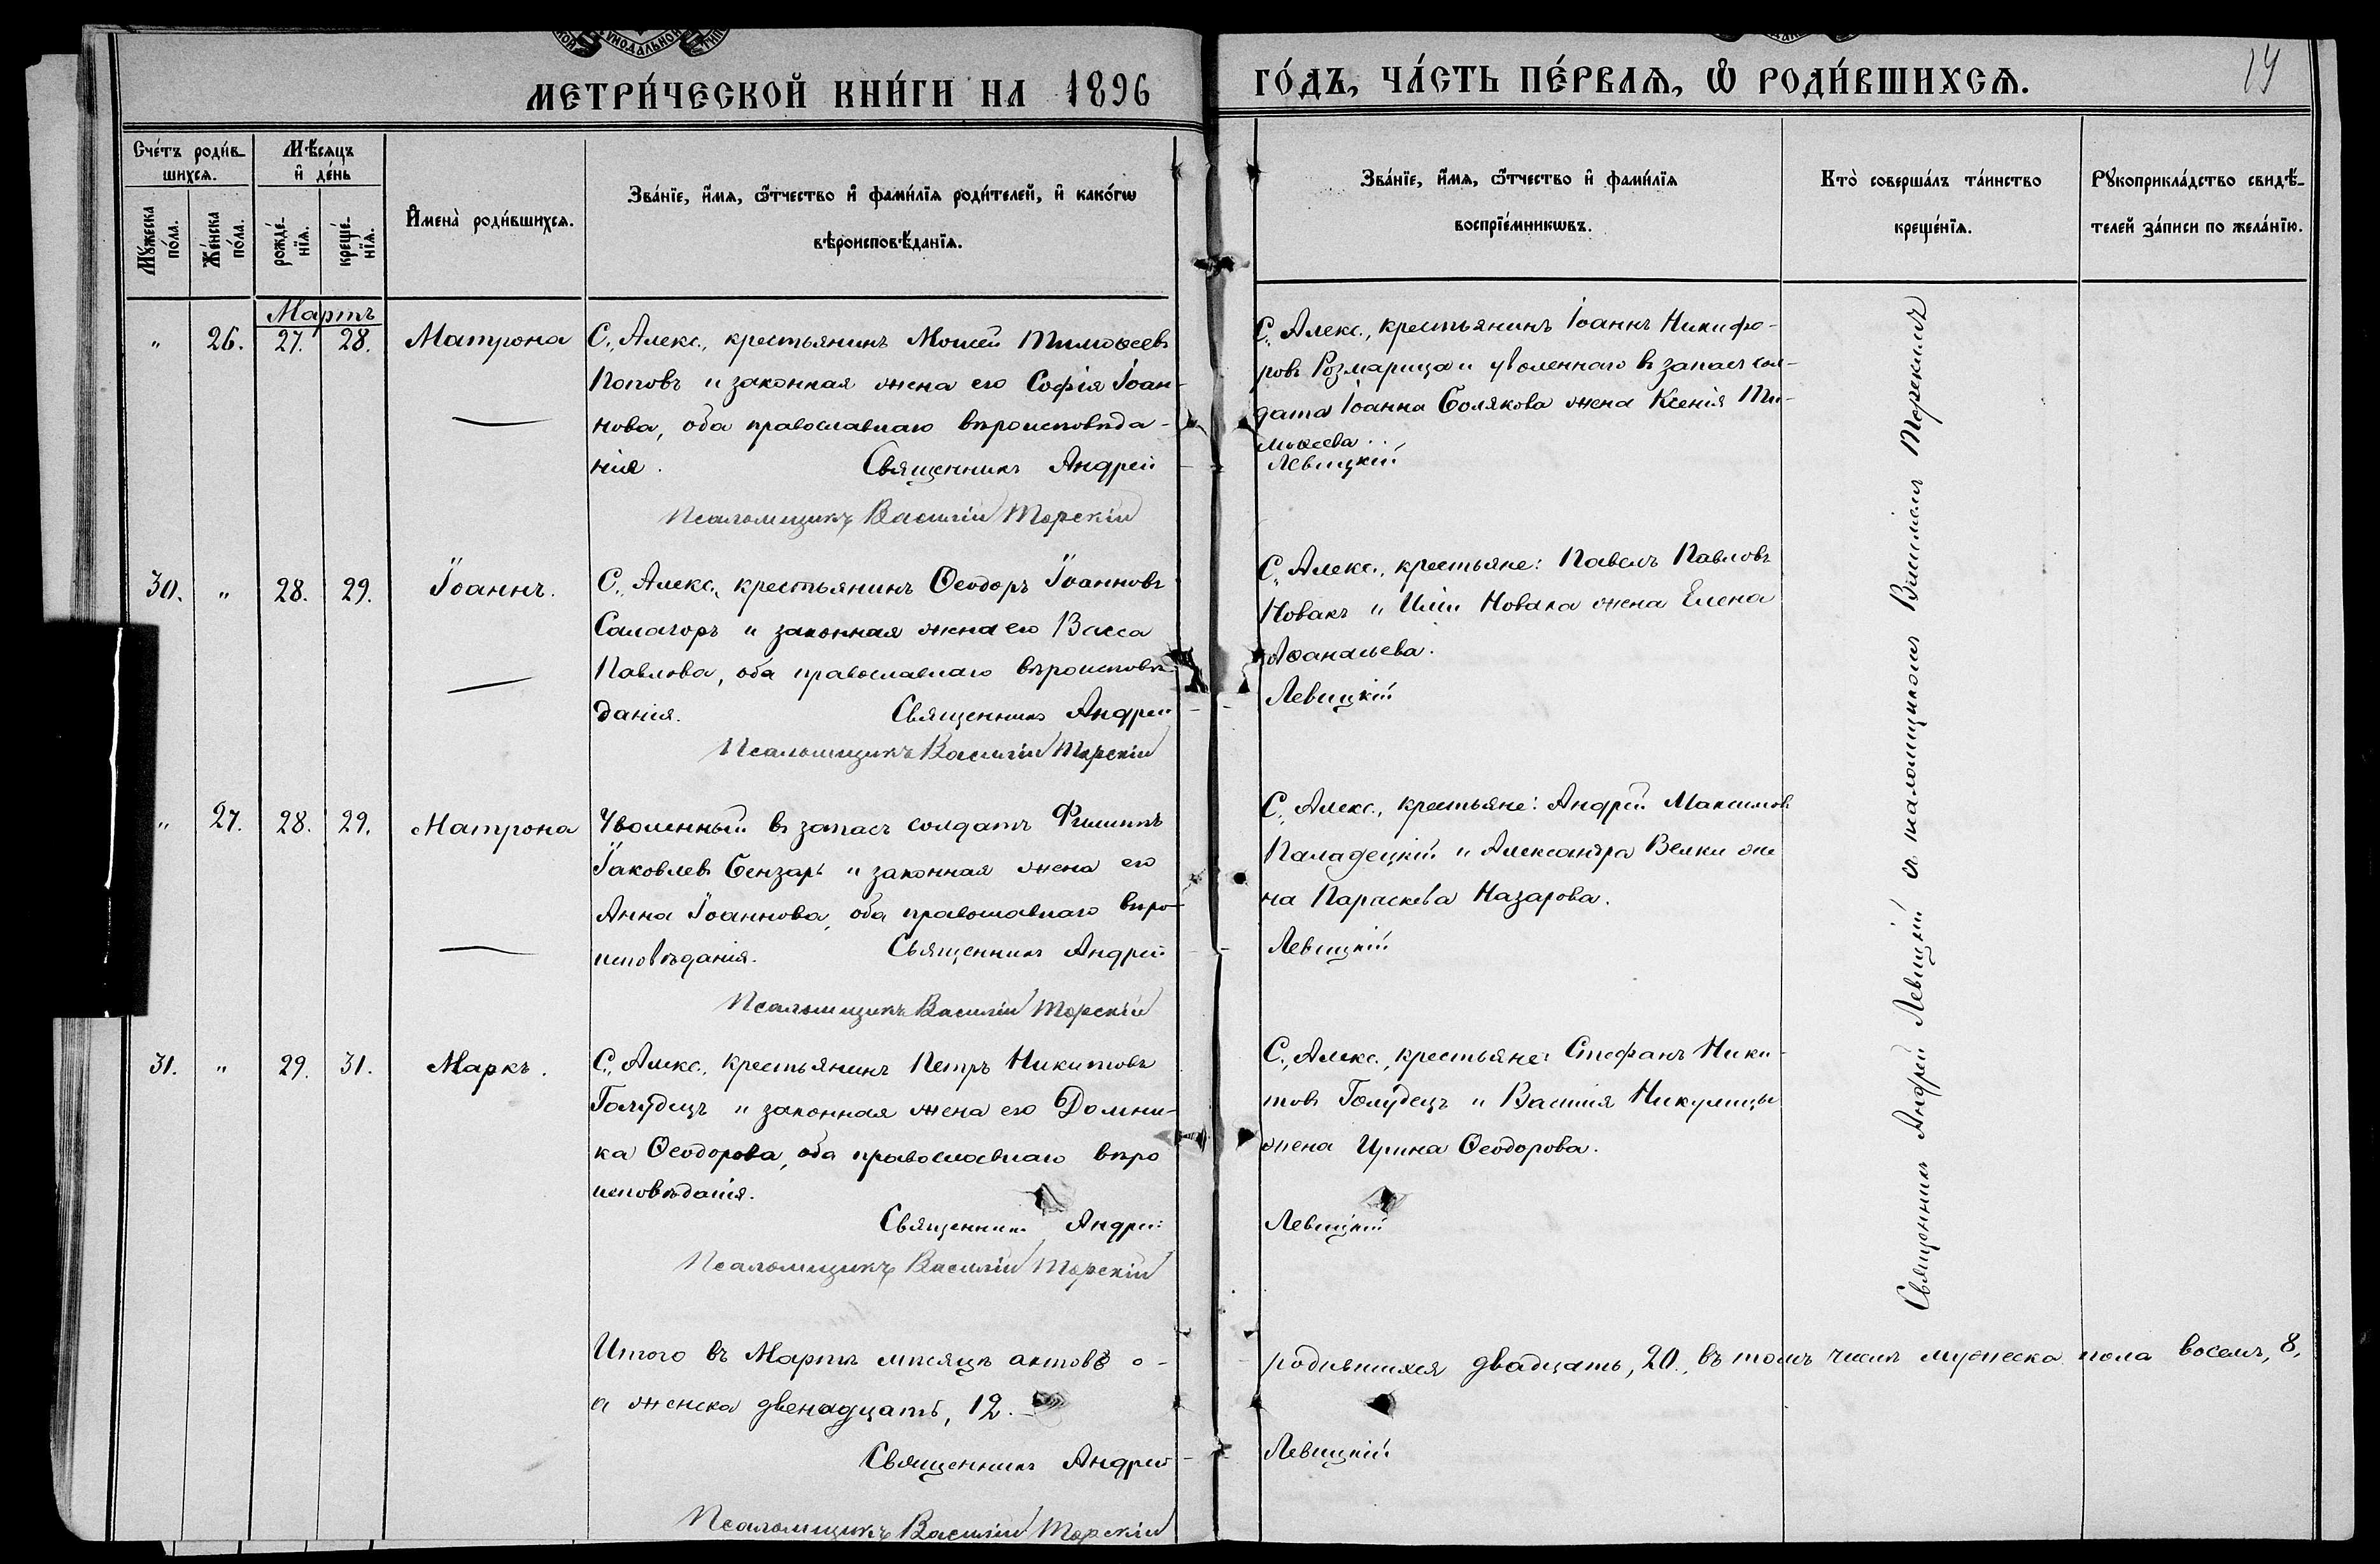 МЕТРИ́ЧЕСКОЙ КНИ́ГИ НА 1896 ГО́ДЪ, ЧА́СТЬ ПЕ́РВАѦ, Ѡ҆ РОДИ́ВШИХСѦ.
19
Сче́тъ роди́в-
шихсѧ.
Мѣ́сѧцъ
и҆ де́нь
Мꙋ́жеска
по́ла.
Же́нска
по́ла.
рожде́-
нїѧ.
креще́-
нїѧ.
И҆мена̀ роди́вшихсѧ.
Зва́нїе, и҆́мѧ, ѻ҆́тчество и҆ фами́лїѧ роди́телей, и҆ како́гѡ
вѣроисповѣ́данїѧ.
Зва́нїе, и҆́мѧ, ѻ҆́тчество и҆ фами́лїѧ
воспрїе́мникѡвъ.
Кто̀ соверша́лъ та́инство
креще́нїѧ.
Рꙋкоприкла́дство свидѣ́-
телей за́писи по жела́нїю.
Мартъ
" 26. 27. 28. Матрона
С. Алекс., крестьянинъ Мосей Тимоѳеевъ
Поповъ и законная жена его Софія Іоан-
нова, оба православнаго вѣроисповѣда-
нія. Священникъ Андрей
Псаломщикъ Василій Торскій
С. Алекс., крестьянинъ Іоаннъ Никифо-
ровъ Розмарица и уволеннаго въ запасъ сол-
дата Іоанна Болякова жена Ксенія Ти-
моѳеева.
Левицкій
30. " 28. 29. Іоаннъ.
С. Алекс., крестьянинъ Ѳеодоръ Іоанновъ
Салагоръ и законная жена его Васса
Павлова, оба православнаго вѣроисповѣ-
данія. Священникъ Андрей
Псаломщикъ Василій Торскій
С. Алекс., крестьяне: Павелъ Павловъ
Новакъ и Иліи Новака жена Елена
Аѳанасьева.
Левицкій
" 27. 28. 29. Матрона
Уволенный въ запасъ солдатъ Филиппъ
Іаковлевъ Бензарь и законная жена его
Анна Іоаннова, оба православнаго вѣро-
исповѣданія. Священникъ Андрей
Псаломщикъ Василій Торскій
С. Алекс., крестьяне: Андрей Максимовъ
Паладецкій и Александра Велки же
на Параскева Назарова.
Левицкій
31. " 29. 31. Маркъ.
С. Алекс., крестьянинъ Петръ Никитовъ
Голудецъ и законная жена его Домни-
ка Ѳеодорова, оба православнаго вѣро
исповѣданія.
Священникъ Андрей
Псаломщикъ Василій Торскій
С. Алекс., крестьяне: Стефанъ Ники-
товъ Голудецъ и Василія Никулицы
жена Ирина Ѳеодорова.
Левицкій
Священникъ Андрей Левицкій съ псаломщикомъ Василіемъ Торскимъ
Итого въ Мартѣ мѣсяцѣ актовъ о- родившихся двадцать, 20., въ томъ числѣ мужеска пола восемь, 8,
а женска двенадцать, 12.
Священникъ Андрей Левицкій
Псаломщикъ Василій Торскій